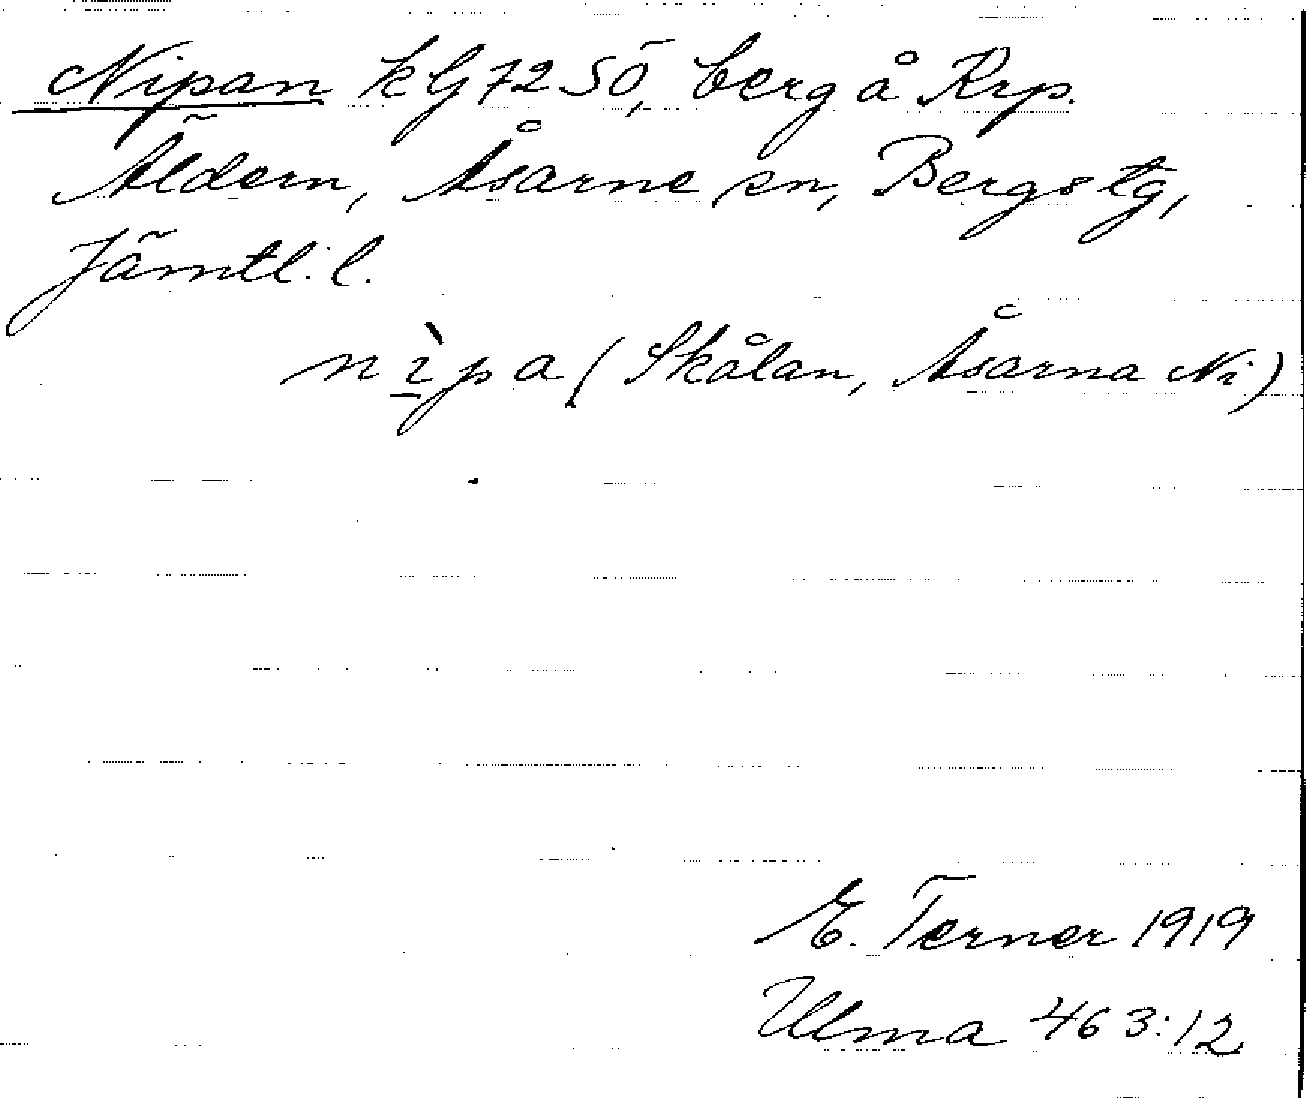 Nipan kG7250, berg å Krp.
Äldern, Åsarne sn, Bergs tg,
Jämtl. l.
nìpa (Skålan, Åsarna Ni)
E. Terner 1919
Ulma 463:12